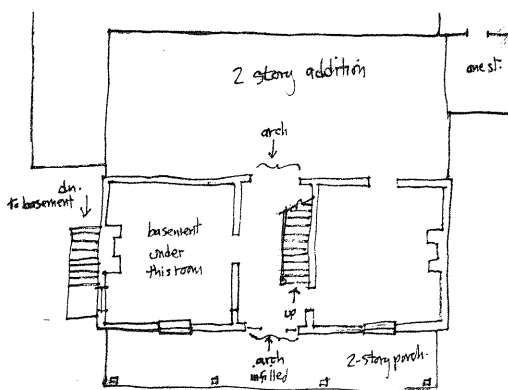 2 story addition
one st.
arch
dn.
to basement
basement
under
this room
up
arch
infilled
2-story porch.